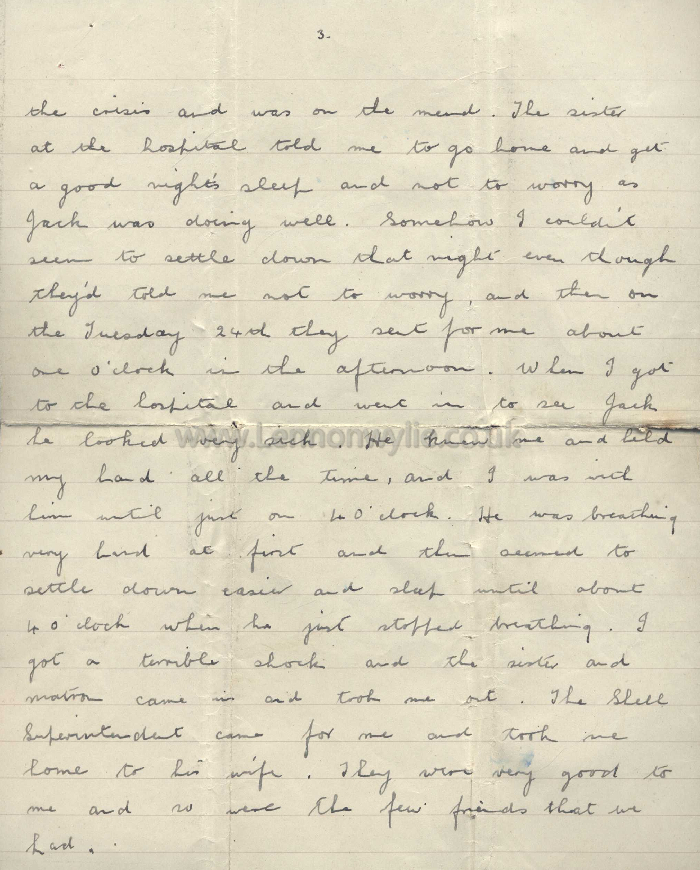 3.
the crisis and was on the mend. The sister
at the hospital told me to go home and get
a good night's sleep and not to worry as
Jack was doing well. Somehow I couldn't
seem to settle down that night even though
they'd told me not to worry, and then on
the Tuesday 24th they sent for me about
one o'clock in the afternoon. When I got
to the hospital and went in to see Jack
he looked very sick. He knew me and held
my hand all the time, and I was with
him until just on 4 o'clock. He was breathing
very hard at first and then seemed to
settle down easier and sleep until about
4 o'clock when he just stopped breathing. I
got a terrible shock and the sister and
matron came in and took me out. The Shell
Superintendent came for me and took me
home to his wife. They were very good to
me and so were the few friends that we
had.